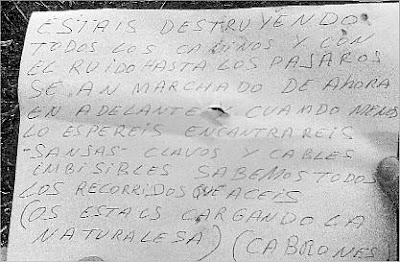 ESTAIS DESTRUYENDO
TODOS LOS CAMINOS Y CON
EL RUIDO HASTA LOS PAJAROS
SE AN MARCHADO DE AHORA
EN ADELANTE Y CUAMDO MENOS
LO ESPEREIS ENCANTRAREIS
-SANSAS- CLAVOS Y CABLES
IMBISIBLES SABEMOS TODOS
LOS RECORRIDOS QUE ACEIS
(OS ESTAIS CARGANDO LA
NATURALESA) (CABRONES